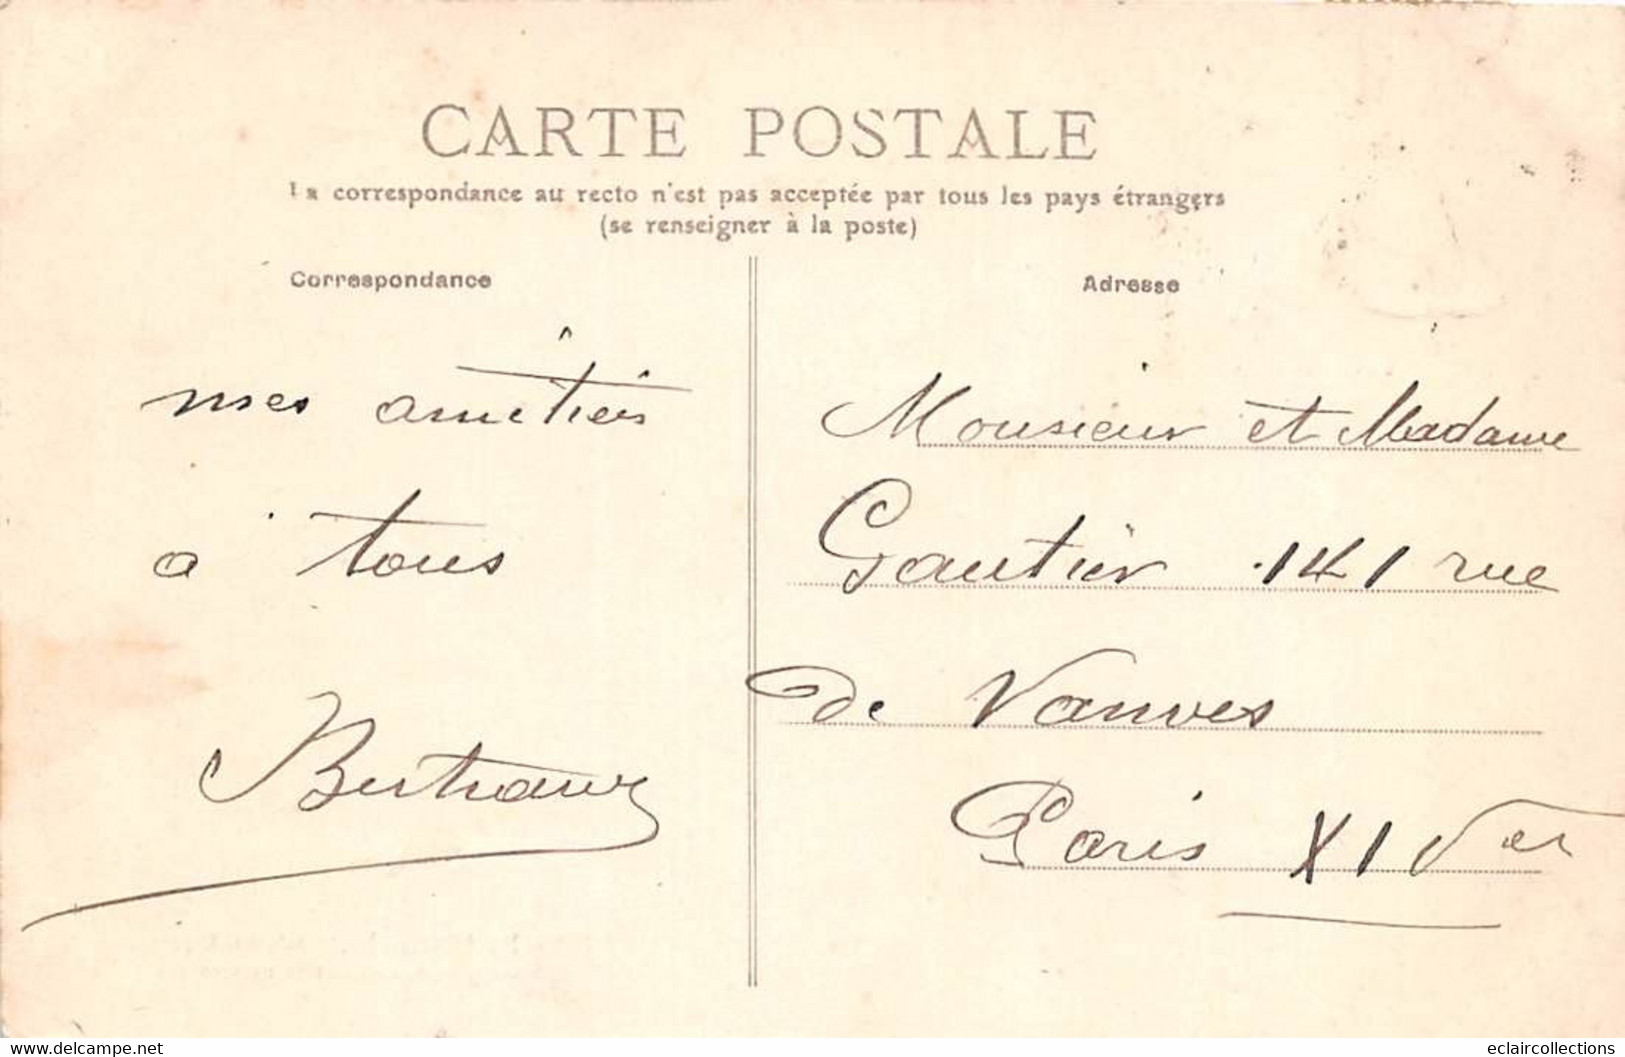 CARTE POSTALE
La correspondance au recto n'est pas acceptée par tous les pays étrangers
(se renseigner à la poste)
Correspondance
mes amitiés
à tous
Adresse
Monsieur et Madame
Gautier 141 rue
de Vanves
Paris XIV
www.delcampe.net
eclaircollections